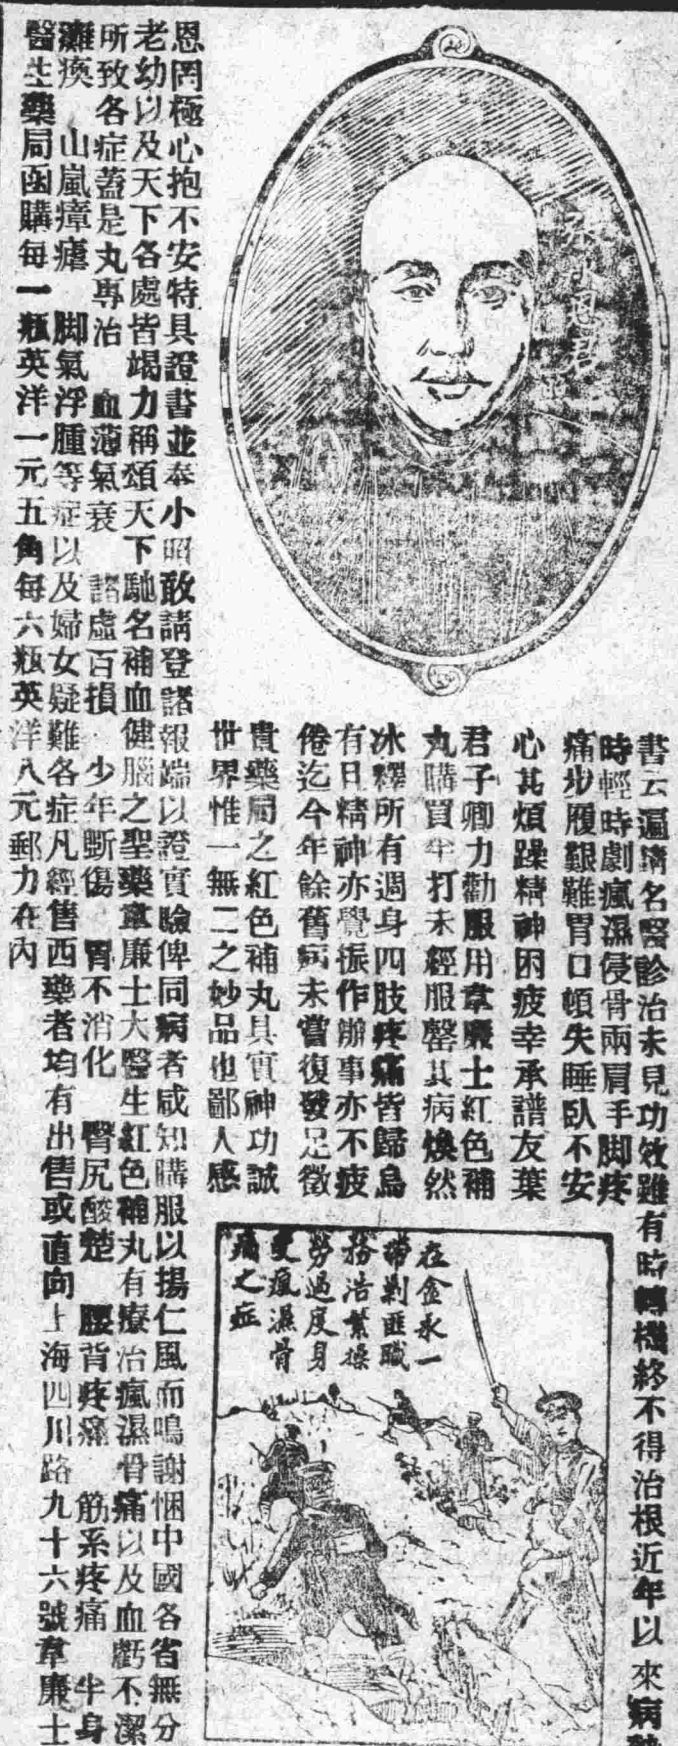 書云遍請名醫診治未見功效雖有時轉機終不得治根近年以來病勢
時輕時劇瘋濕侵骨兩肩手脚疼
痛步履艱難胃口頓失睡臥不安
心甚煩躁精神困疲幸承譜友葉
君子卿力勸服用韋廉士紅色補
丸購買半打未經服罄其病煥然
冰釋所有週身四肢疼痛皆歸烏
有日精神亦覺振作辦事亦不疲
倦迄今年餘舊病未嘗復發足徵
貴藥局之紅色補丸具實神功誠
世界惟一無二之妙品也鄙人感
恩罔極心抱不安特具證書並奉小照敢請登諸報端以證實驗俾同病者咸知購服以揚仁風而鳴謝悃中國各省無分
老幼以及天下各處皆竭力稱頌天下馳名補血健腦之聖藥韋廉士大醫生紅色補丸有療治瘋濕骨痛以及血虧不潔
所致各症蓋是丸專治 血薄氣衰 諸虛百損 少年斲傷 胃不消化 臀尻酸楚 腰背疼痛 筋系疼痛 半身
癱瘓 山嵐瘴瘧 脚氣浮腫等症以及婦女疑難各症凡經售西藥者均有出售或直向上海四川路九十六號韋廉士
醫生藥局函購每一瓶英洋一元五角每六瓶英洋八元郵力在內
在金永一
帶剿匪職
務浩繁操
勞過度身
受瘋濕骨
痛之症